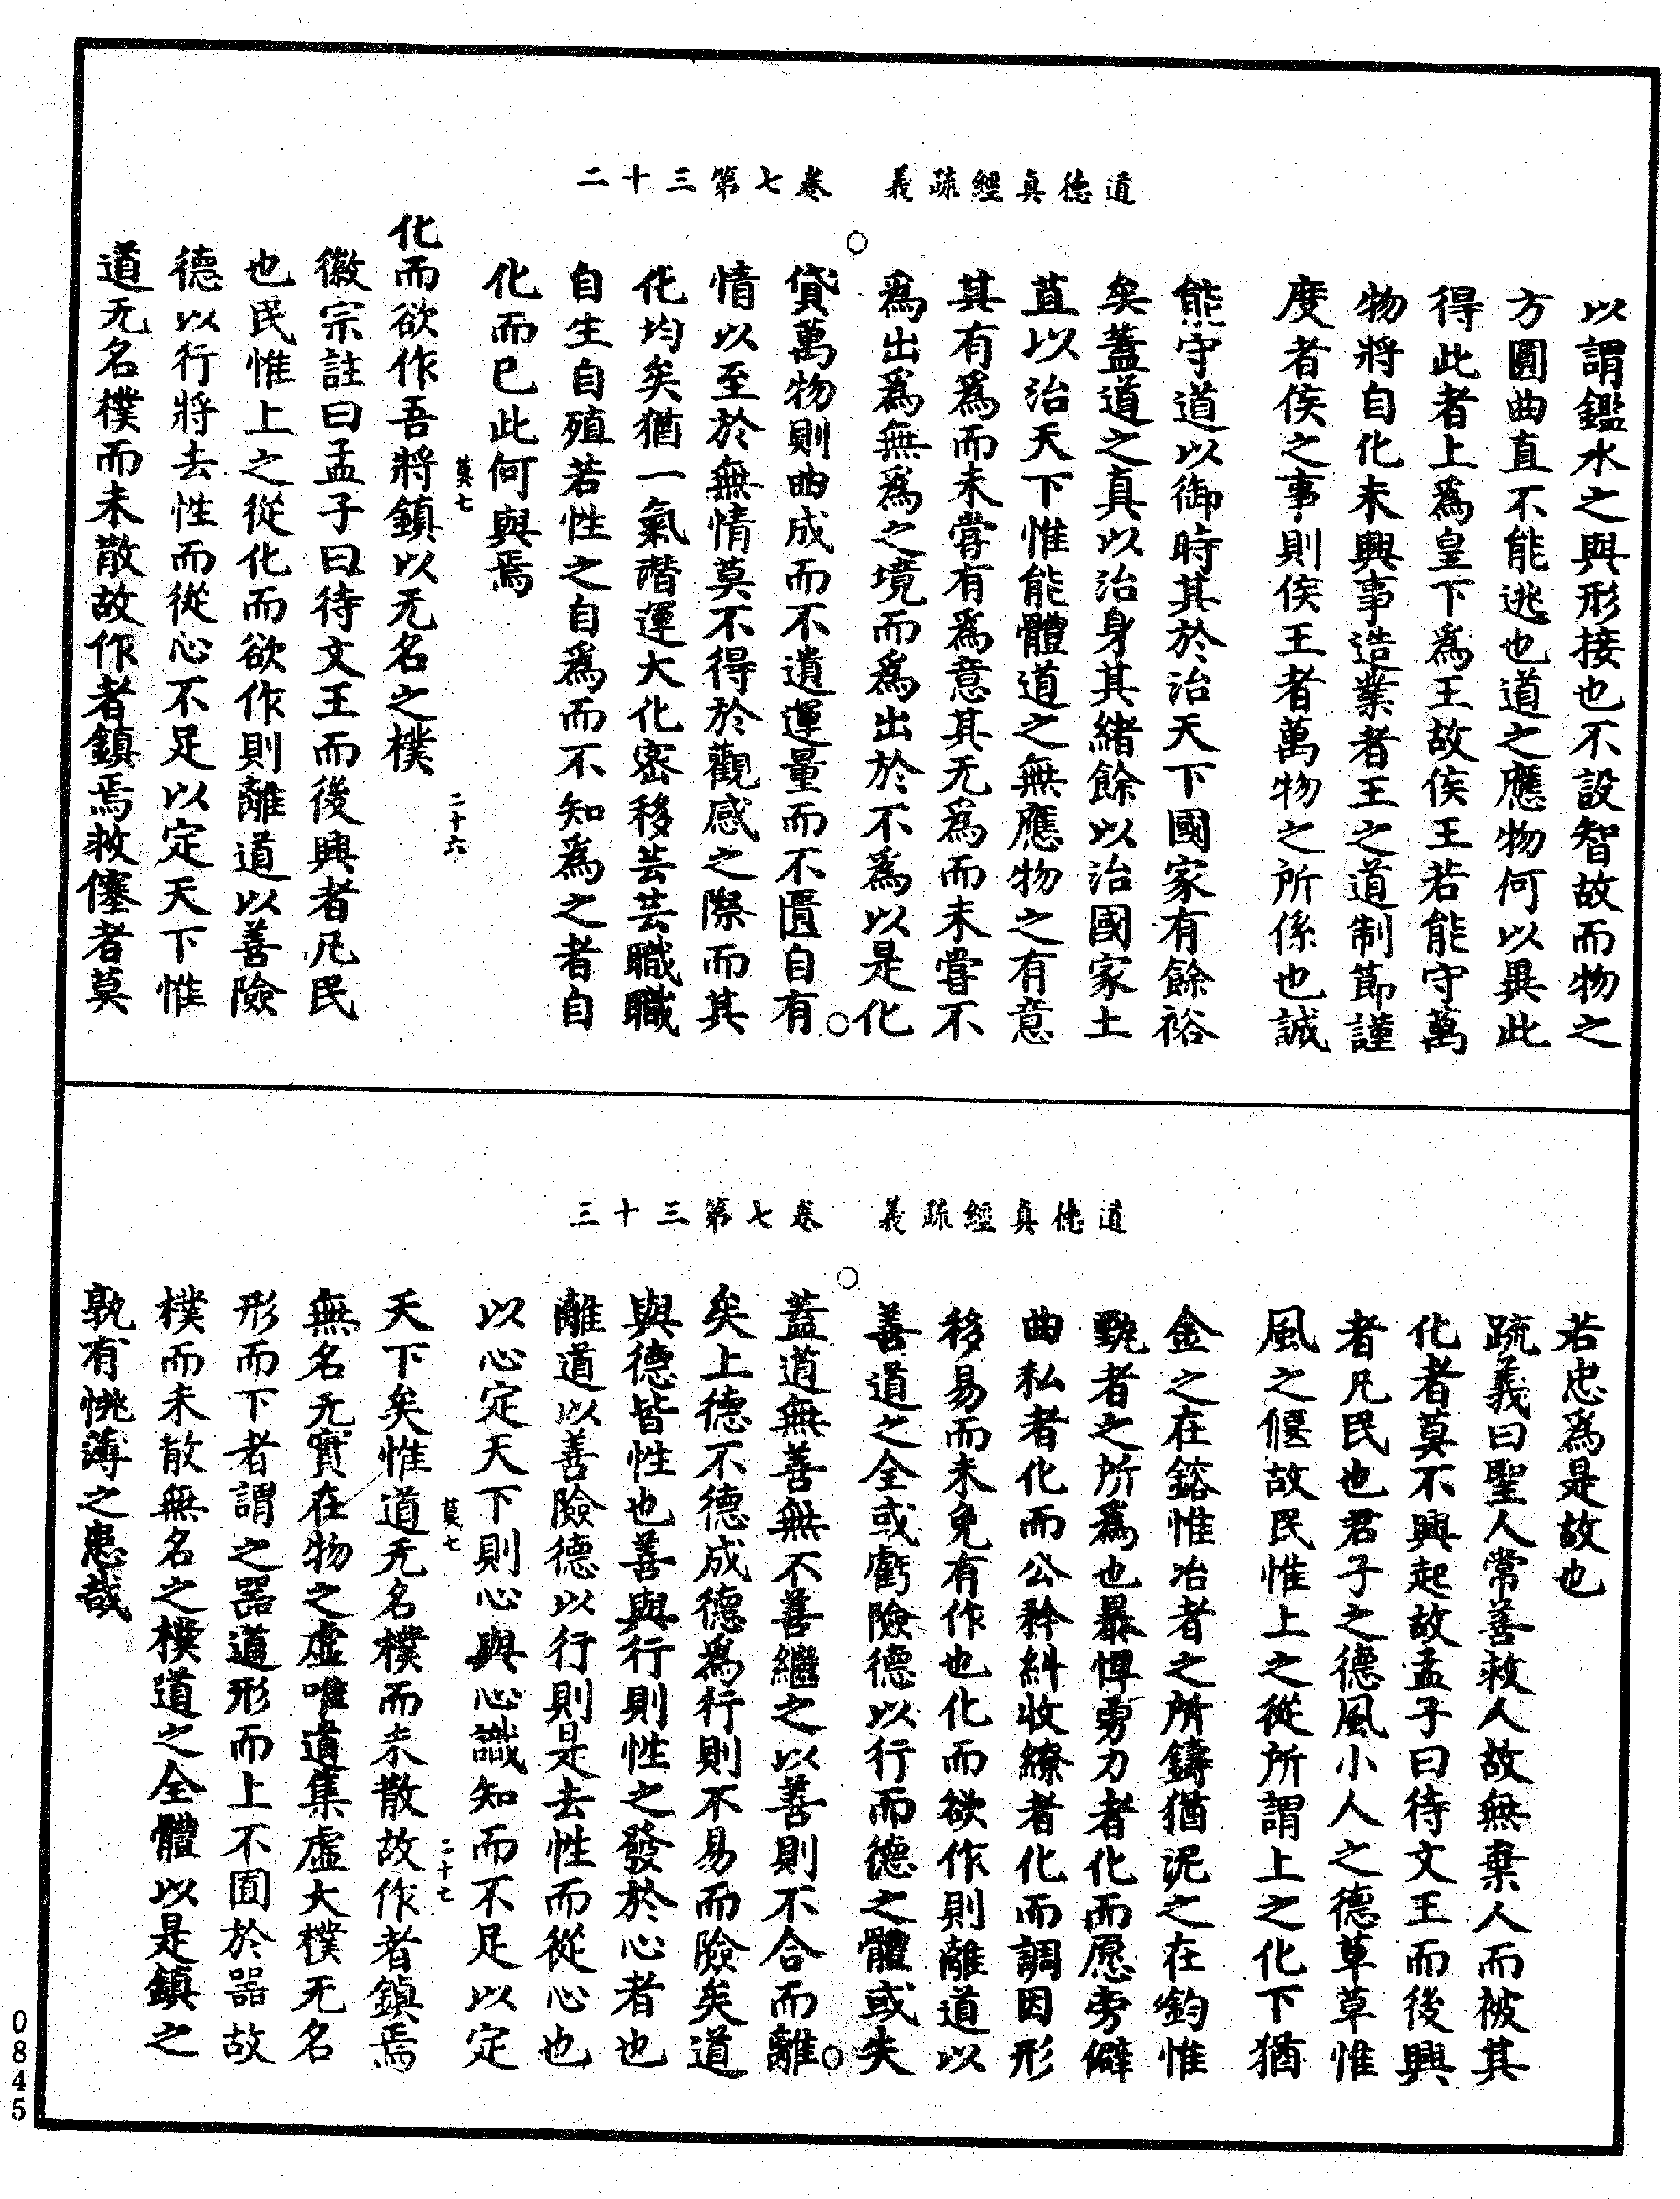 道德真經疏義　卷七第三十二
以謂鑑水之與形接也不設智故而物之
方圓曲直不能逃也道之應物何以異此
得此者上爲皇下爲王故侯王若能守萬
物將自化未興事造業者王之道制節謹
度者侯之事則侯王者萬物之所係也誠
能守道以御時其於治天下國家有餘裕
矣蓋道之真以治身其緒餘以治國家土
苴以治天下惟能體道之無應物之有意
其有爲而未嘗有爲意其无爲而未嘗不
爲出爲無爲之境而爲出於不爲以是化
貸萬物則曲成而不遺運量而不匱自有
情以至於無情莫不得於觀感之際而其
化均矣猶一氣潛運大化密移芸芸職職
自生自殖若性之自爲而不知爲之者自
化而已此何與焉
莫七　二十六
化而欲作吾將鎮以无名之樸
徽宗註曰孟子曰待文王而後興者凡民
也民惟上之從化而欲作則離道以善險
德以行將去性而從心不足以定天下惟
道无名樸而未散故作者鎮焉救僿者莫
道德真經疏義　卷七第三十三
若忠爲是故也
疏義曰聖人常善救人故無棄人而被其
化者莫不興起故孟子曰待文王而後興
者凡民也君子之德風小人之德草草惟
風之偃故民惟上之從所謂上之化下猶
金之在鎔惟冶者之所鑄猶泥之在鈞惟
甄者之所爲也暴悍勇力者化而愿旁僻
曲私者化而公矜糾收繚者化而調因形
移易而未免有作也化而欲作則離道以
善道之全或虧險德以行而德之體或失
蓋道無善無不善繼之以善則不合而離
矣上德不德成德爲行則不易而險矣道
與德皆性也善與行則性之發於心者也
離道以善險德以行則是去性而從心也
以心定天下則心與心識知而不足以定
莫七　二十七
天下矣惟道无名樸而未散故作者鎮焉
無名无實在物之虛唯道集虛大樸无名
形而下者謂之器道形而上不囿於器故
樸而未散無名之樸道之全體以是鎮之
孰有恌薄之患哉
0845